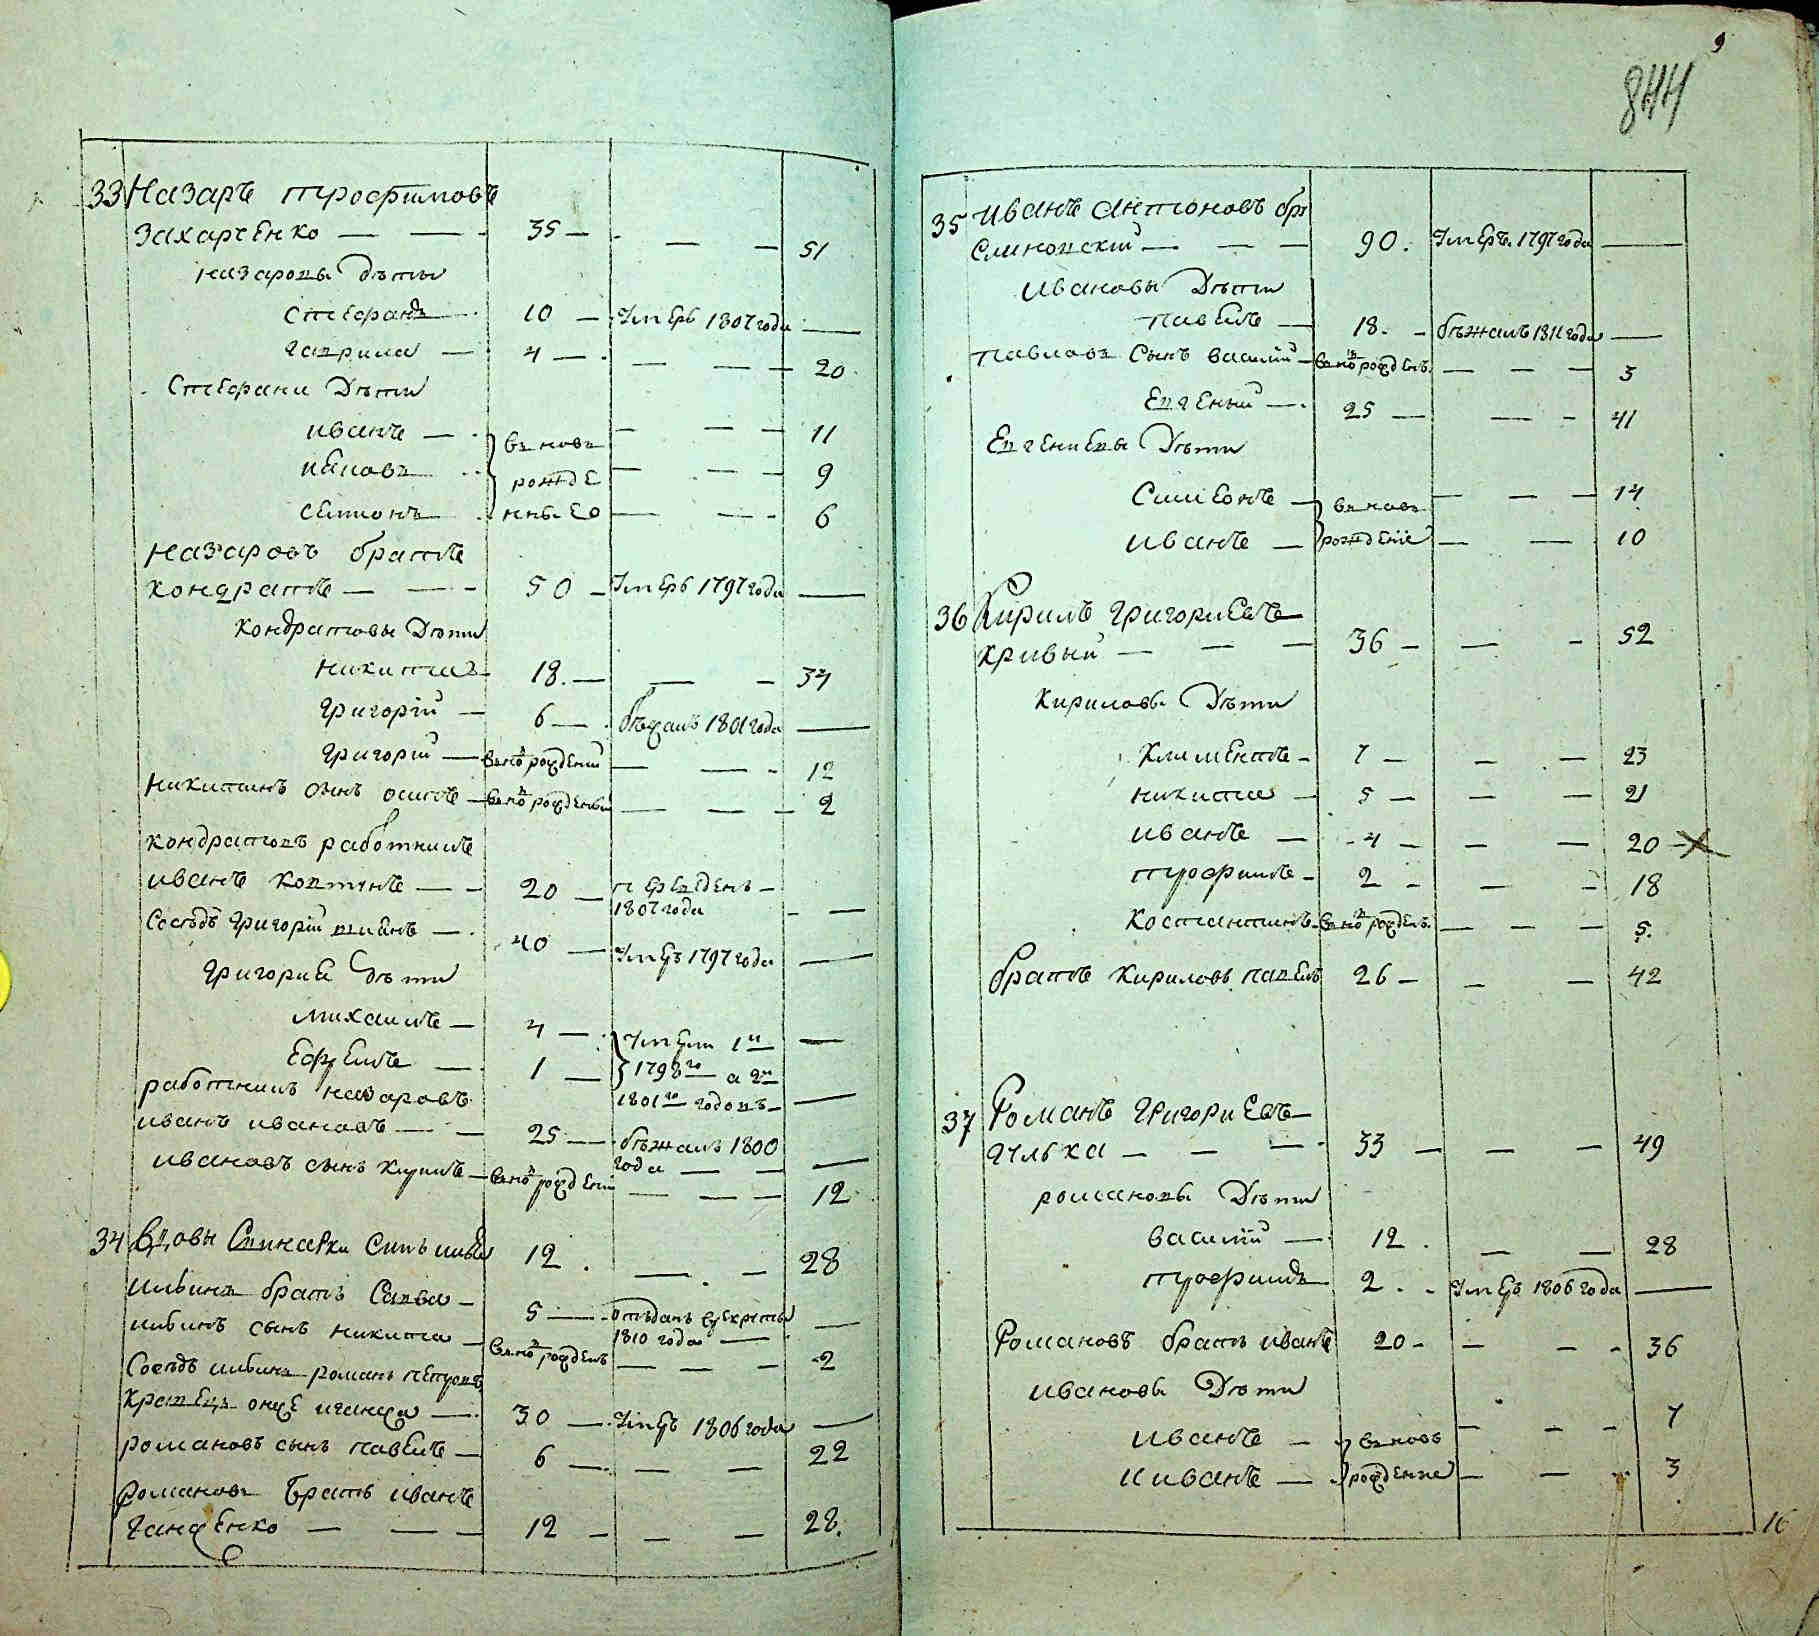 33 Назаръ трофимовъ
Захарченко — — 35 — — — 51
назаровы дѣти
Стефанъ — 10 — умеръ 1807 года —
гаврила — 4 — — — 20
Стефани дѣти
иванъ — вновь — — 11
иваковъ рожде — — 9
семионъ нные — — 6
назаровъ братъ
кондратъ — — 50 — умеръ 1797 года —
кондратовы дѣти
никита — 18. — — — 34
григорій — 6 — бѣжалъ 1801 года —
григорій — вновь рожденый — — 12
никитинъ сынъ осипъ — вновь рожденый — — 2
кондратовъ работникъ
иванъ — — 20 — переведенъ —
1807 года — —
Сосѣдъ григорій — 40 — умеръ 1797 года —
григорія дѣти
михаилъ — 4 — умерли 1й —
Ефремъ — 1 — 1798го а 2й
работникъ назаровъ 1801го годовъ —
иванъ ивановъ — — 25 — бѣжалъ 1800
года — — —
ивановъ сынъ кирилъ — вновь рожденый — — 12
34 Вдовы сынъ илья 12. — — 28
ильинъ братъ Савва — 5 — отъданъ врекруты
1810 года — —
ильинъ сынъ никита — вновь рожденъ — — 2
Сосѣдъ ильинъ романъ петровъ
кравецъ онже — 30 — умеръ 1806 года —
романовъ сынъ павелъ — 6 — — — 22
романовъ братъ иванъ
ганженко — — — 12 — — — 28.
9
844
35 иванъ антоновъ
— — — 90. умеръ 1797 года —
ивановы дѣти
павелъ — 18. — бѣжалъ 1811 года —
павловъ сынъ василій — вновь рожденъ. — — — 3
Евгеный — 25 — — — 41
Евгениевы дѣти
Симеонъ — вновь — — — 14
иванъ — рожденіе — — 10
36 Кирилъ григориевъ —
кривый — — — 36 — — — 52
кириловы дѣти
климентъ — 7 — — — 23
никита — 5 — — — 21
иванъ — 4 — — — 20 — х
трофимъ — 2 — — — 18
костантинъ — вновь рожденъ. — — — 5.
братъ кириловъ павелъ 26 — — — 42
37 Романъ григориевъ —
гулька — — — 33 — — — 49
романовы дѣти
василій — 12. — — 28
трофимъ 2. — умеръ 1806 года —
Романовъ братъ иванъ 20 — — — 36
ивановы дѣти
иванъ — вновь — — — 7
и иванъ — рожденые — — 3
16